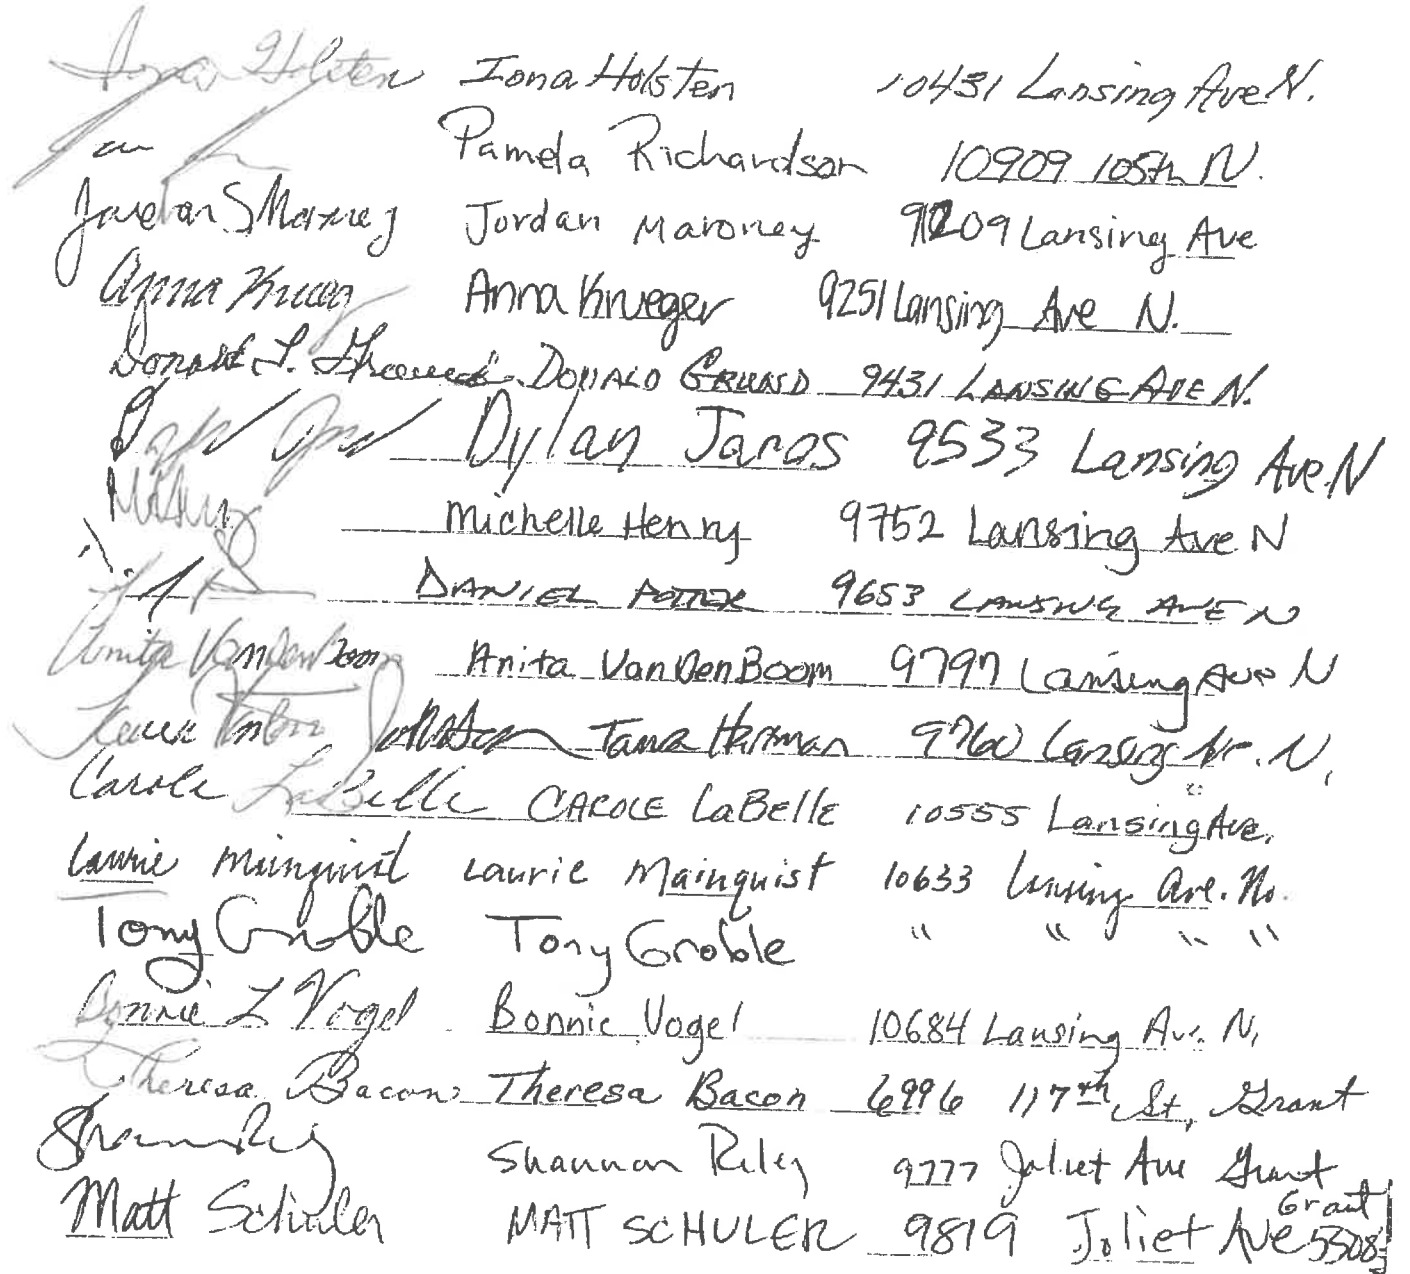 Iona Holsten Iona Holsten 10431 Lansing Ave N.
Pamela Richardson 10909 105th N.
Jordan S Maroney Jordan Maroney 9209 Lansing Ave
Anna Krueg Anna Krueger 9251 Lansing Ave N.
Donald L. DONALD GRUND 9431 LANSING AVE N.
Dylan Jaros 9533 Lansing Ave. N
Michelle Henry 9752 Lansing Ave N
DANIEL POTTER 9653 LANSING AVE N
Anita VanDenBoom Anita VanDenBoom 9797 Lansing Ave N
Tana Hartman 9760 Lansing Av. N.
Carole LaBelle CAROLE LaBELLE 10555 Lansing Ave.
Laurie Mainquist Laurie Mainquist 10633 Lansing Ave. No.
Tony Groble Tony Groble " " " "
Bonnie L Vogel Bonnie Vogel 10684 Lansing Av. N.
Theresa Bacon Theresa Bacon 6996 117th St, Grant
Shannon Riley 9777 Joliet Ave Grant
Matt Schuler MATT SCHULER 9819 Joliet Ave Grant